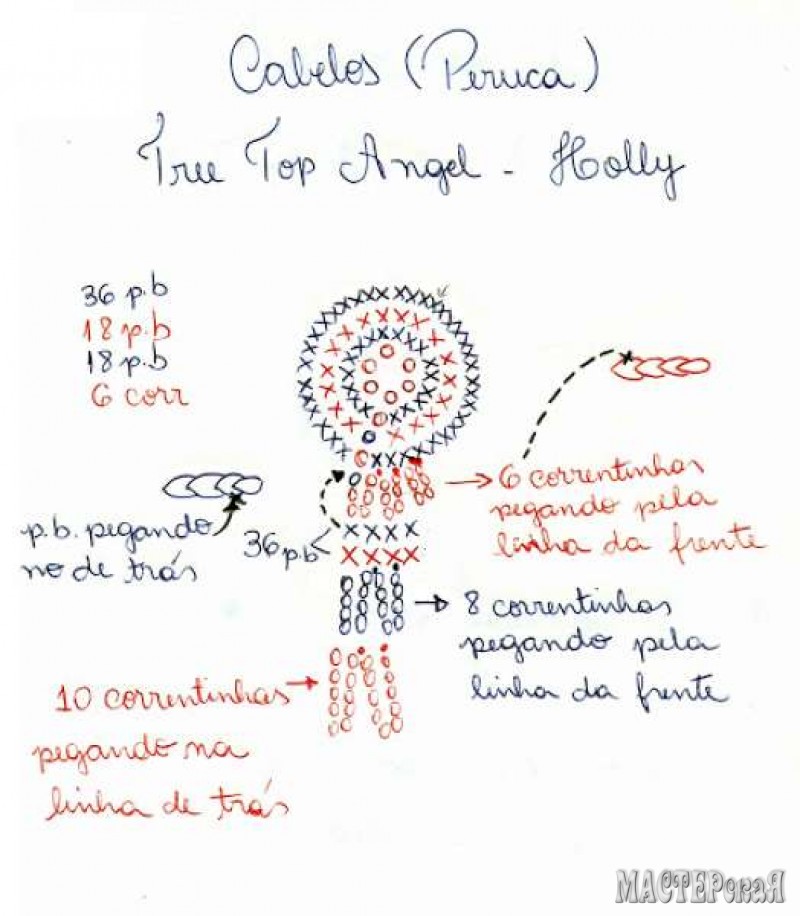 Cabelos (Peruca)
Tree Top Angel - Holly
36 p.b
18 p.b
18 p.b
6 corr
6 correntinhas
pegando pela
linha da frente
p.b. pegando
no de trás
36 p.b
8 correntinhas
pegando pela
linha da frente
10 correntinhas
pegando na
linha de trás
МАСТЕРская